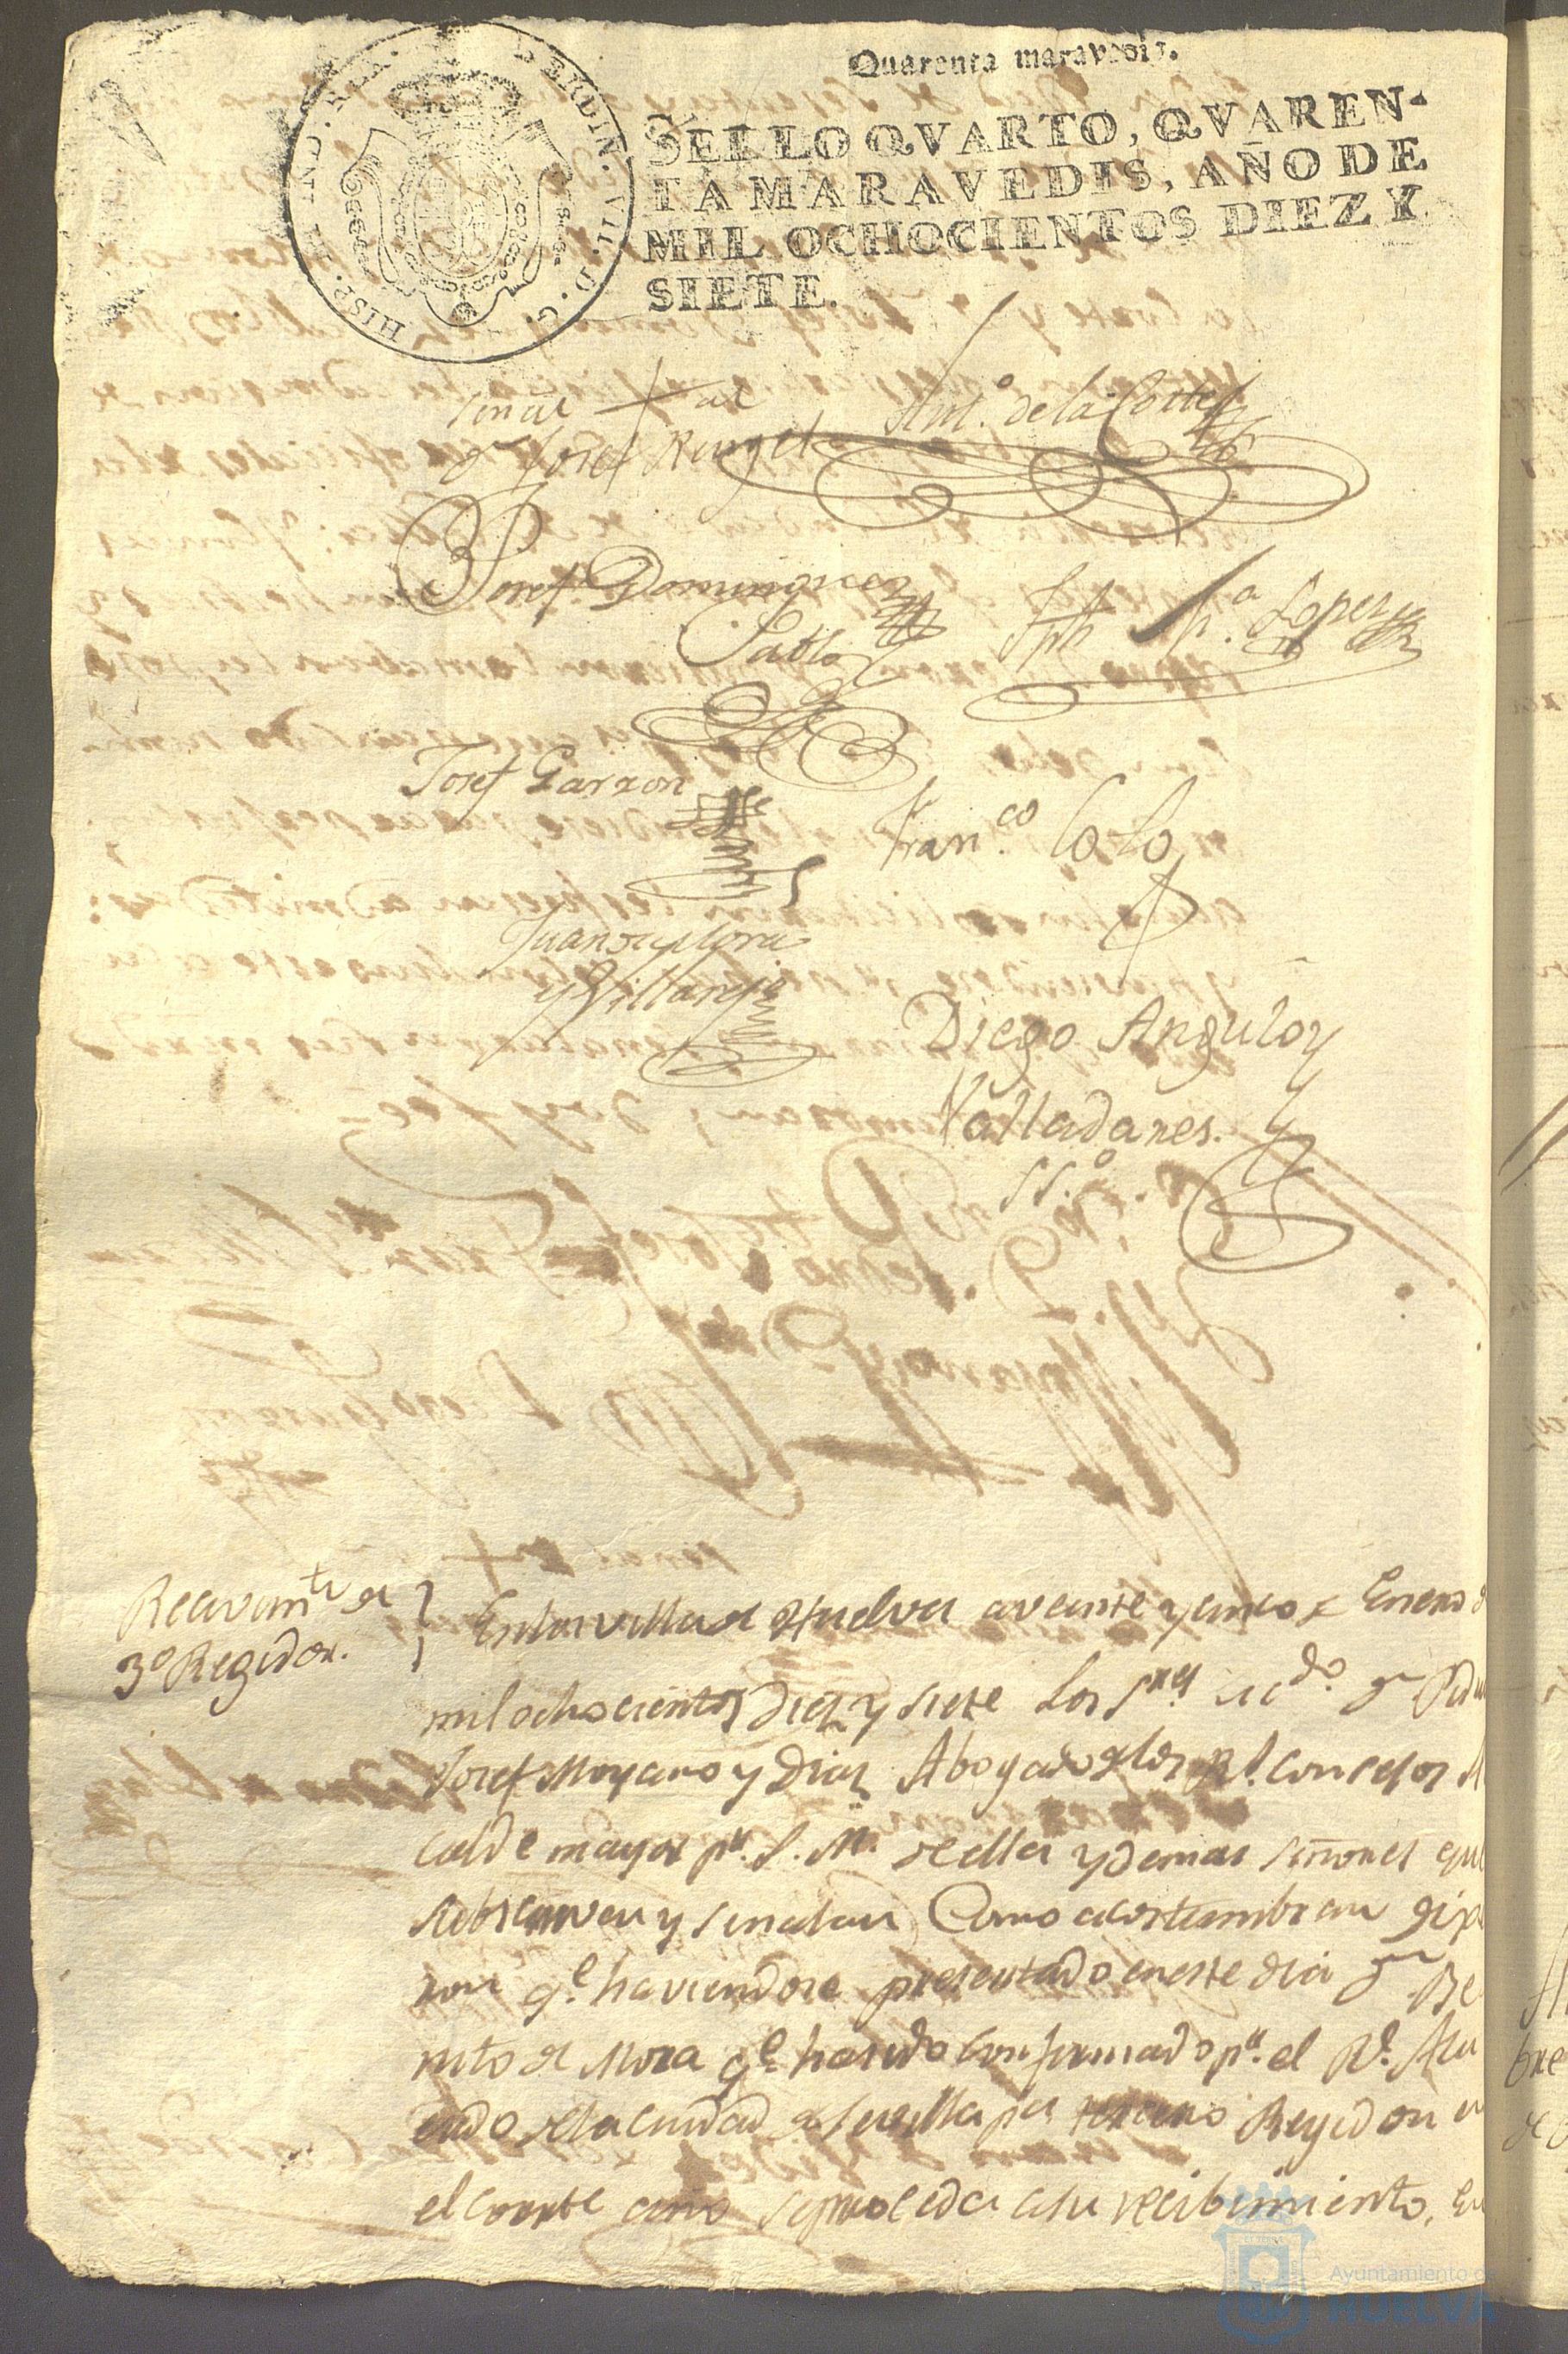 Quarenta maravedis.
SELLO QVARTO, QVAREN-
TA MARAVEDIS, AÑO DE
MIL OCHOCIENTOS DIEZ Y
SIETE.
HISP. ET IND. REX. FERDIN. VII. D. G.
señal + de
Dn Josef Rengel
Antº. de la Corte
Josef Dominguez
Pablo
Jph Mª. Lopez
Josef Garzon
Franco. Colo
Juan de Mora
y Villarejo
Diego Angulo y
Valladares.
SSº
Recivimto de
3º Regidor.
En la villa de Huelva a veinte y cinco de Enero d
mil ochocientos diez y siete los Sres Licdo. Dn Pedro
Josef Moyano y Diaz Abogado de los Rs. Consejos Al
calde mayor pr. S. M. de ella y demas señores que
subscriven y señalan como acostumbran dixe
ron qe. haviendose presentado en este dia Dn Be
nito de Mora qe. ha sido confirmado pr. el Rl. Acu
erdo de la ciudad de Sevilla pa tercero Regidor en
el corrte año se proceda a su recibimiento, En
Ayuntamiento de
HUELVA